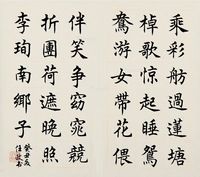 乘彩舫過蓮塘
棹歌惊起睡鴛
鴦游女帶花偎
伴笑争窈窕競
折團荷遮晚照
李珣南鄉子